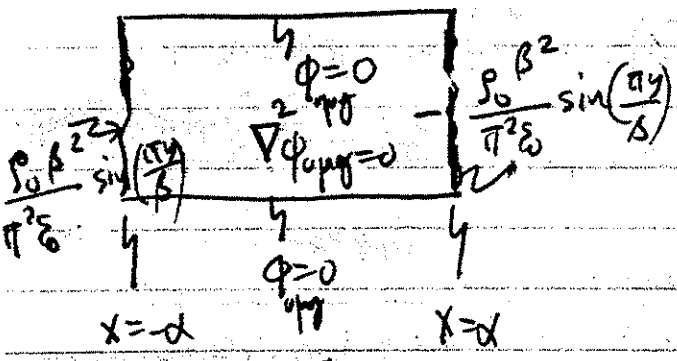 Φομογ=0
∇²Φομογ=0
ρ₀β²/π²ε₀ sin(πy/β)
−ρ₀β²/π²ε₀ sin(πy/β)
Φομογ=0
x=-α x=α